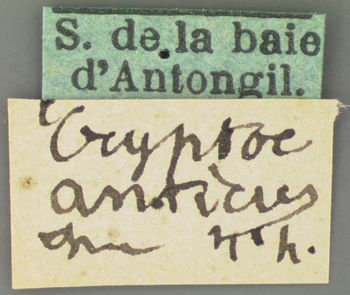 S. de la baie
d'Antongil.
Cryptoc
anticus